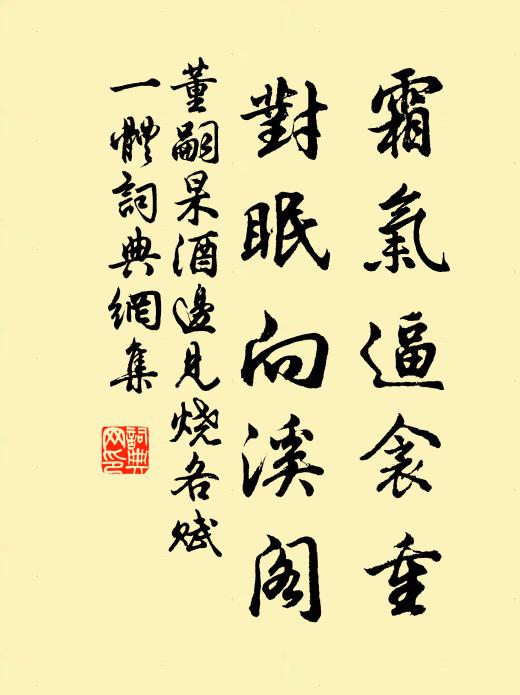 霜氣逼衾重
對眠向溪閣
董嗣杲酒邊見燒各賦
一體詞典網集
詞典
網印